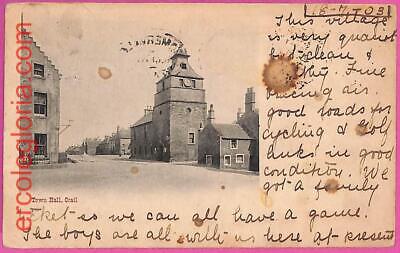 16-7-03
This village
is very quaint
but clean &
healthy. Fine
bracing air.
good roads for
cycling & Golf
links in good
condition. We
got a family
Ticket so we can all have a game.
The boys are all with us here at present
Town Hall, Crail
ercolegloria.com